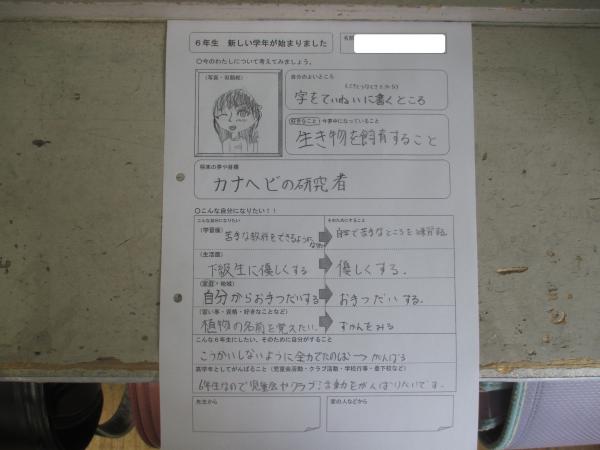 6年生 新しい学年が始まりました
名前
○今のわたしについて考えてみましょう。
(写真・似顔絵)
自分のよいところ
字をていねいに書くところ
好きなこと 今夢中になっていること
生き物を飼育すること
将来の夢や目標
カナヘビの研究者
○こんな自分になりたい!!
こんな自分になりたい
そのためにすること
(学習面)
苦手な教科をできるようになりたい
自主で苦手なところを練習
(生活面)
下級生に優しくする
優しくする.
(家庭・地域)
自分からおてつだいする
おてつだいする.
(習い事・資格・好きなことなど)
植物の名前を覚えたい.
ずかんをみる
こんな6年生にしたい、そのために自分がすること
こうかいしないように全力でたのしむ→がんばる
高学年としてがんばること(児童会活動・クラブ活動・学校行事・登下校など)
6年生なので児童会やクラブ活動をがんばりたいです.
先生から
家の人などから